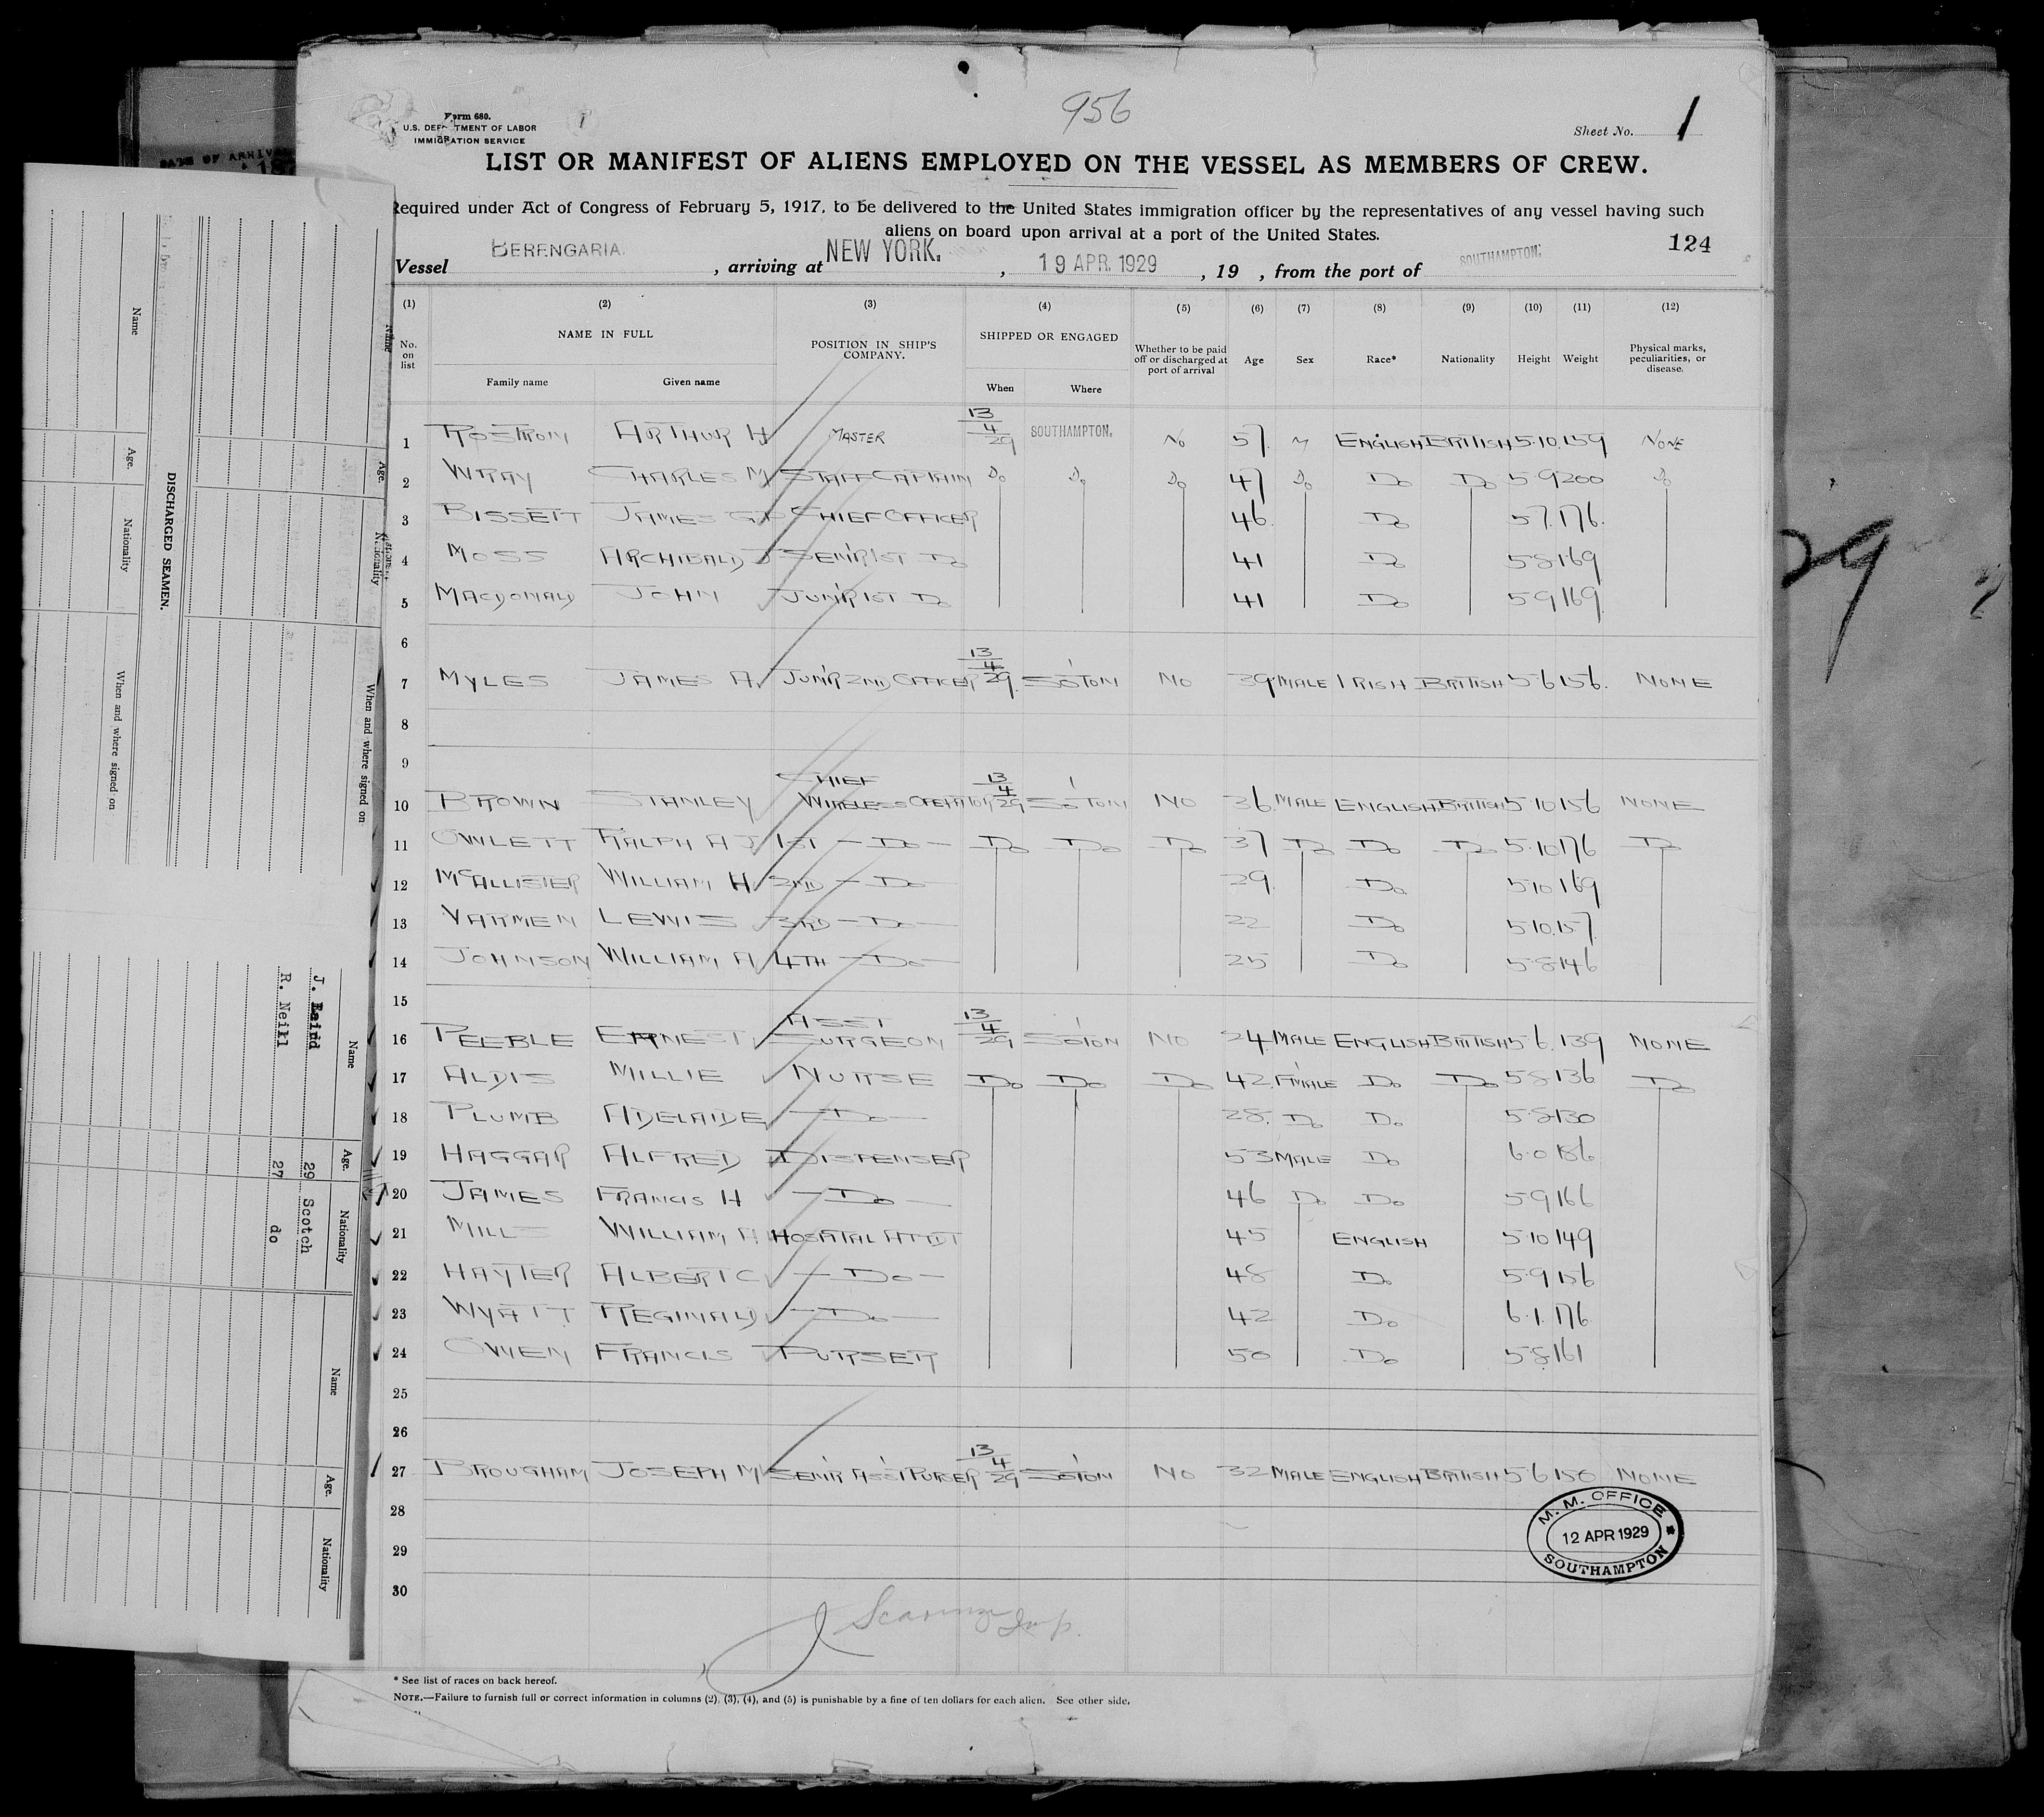 956
Form 680.
U.S. DEPARTMENT OF LABOR
IMMIGRATION SERVICE
Sheet No. 1
LIST OR MANIFEST OF ALIENS EMPLOYED ON THE VESSEL AS MEMBERS OF CREW.
Required under Act of Congress of February 5, 1917, to be delivered to the United States immigration officer by the representatives of any vessel having such
aliens on board upon arrival at a port of the United States.
124
Vessel BERENGARIA. , arriving at NEW YORK. , 19 APR. 1929 , 19 , from the port of SOUTHAMPTON.
(1) (2) (3) (4) (5) (6) (7) (8) (9) (10) (11) (12)
No. on list NAME IN FULL Family name Given name POSITION IN SHIP'S COMPANY. SHIPPED OR ENGAGED When Where Whether to be paid off or discharged at port of arrival Age Sex Race* Nationality Height Weight Physical marks, peculiarities, or disease.
1 ROSTRON ARTHUR H MASTER 13/4/29 SOUTHAMPTON. NO 57. M ENGLISH BRITISH 5.10. 159 NONE
2 WRAY CHARLES M STAFF CAPTAIN Do Do Do 47 Do Do Do 5 9 200 Do
3 BISSETT JAMES G.P CHIEF OFFICER 46. Do 5 7. 176.
4 MOSS ARCHIBALD J SENR 1ST Do 41 Do 5 8 169
5 MACDONALD JOHN JUNR 1ST Do 41 Do 5 9 169
6
7 MYLES JAMES A. JUNR 2ND OFFICER 13/4/29. SO'TON NO 39 MALE IRISH BRITISH 5 6 156. NONE
8
9
10 BROWN STANLEY CHIEF WIRELESS OPERATOR 13/4/29 SO'TON NO 36. MALE ENGLISH BRITISH 5 10 156 NONE
11 OWLETT RALPH A J 1ST - Do - Do Do Do 37 Do Do Do 5.10 176 Do
12 McALLISTER WILLIAM H 2ND - Do - 29. Do. 5 10 169
13 VARMEN LEWIS 3RD - Do - 22 Do 5.10. 157.
14 JOHNSON WILLIAM A 4TH - Do - 25 Do 5 8 146
15
16 PEEBLE ERNEST ASST SURGEON 13/4/29 SO'TON NO 24 MALE ENGLISH BRITISH 5 6. 139 NONE
17 ALDIS MILLIE NURSE Do Do Do 42. F'MALE Do Do 5 8 136 Do
18 PLUMB ADELAIDE - Do - 28. Do Do 5.8 130
19 HAGGAR ALFRED DISPENSER 53 MALE Do 6.0 186
20 JAMES FRANCIS H - Do - 46 Do Do 5.9 166
21 MILLS WILLIAM A HOSPITAL ATTDT 45 ENGLISH 5.10 149
22 HAYTER ALBERT C - Do - 48 Do 5.9 156
23 WYATT REGINALD - Do - 42 Do 6.1. 176
24 OWEN FRANCIS PURSER 50 Do 5 8 161
25
26
27 BROUGHAM JOSEPH M SENR ASST PURSER 13/4/29 SO'TON NO 32 MALE ENGLISH BRITISH 5 6 150 NONE
28
29
30
M. M. OFFICE
12 APR 1929
SOUTHAMPTON
* See list of races on back hereof.
NOTE.—Failure to furnish full or correct information in columns (2), (3), (4), and (5) is punishable by a fine of ten dollars for each alien. See other side.
DISCHARGED SEAMEN.
Name Age. Nationality When and where signed on
Name Age. Nationality When and where signed on
Name Age. Nationality
J. Laird 29 Scotch
R. Neill 27 do
Name Age. Nationality
29